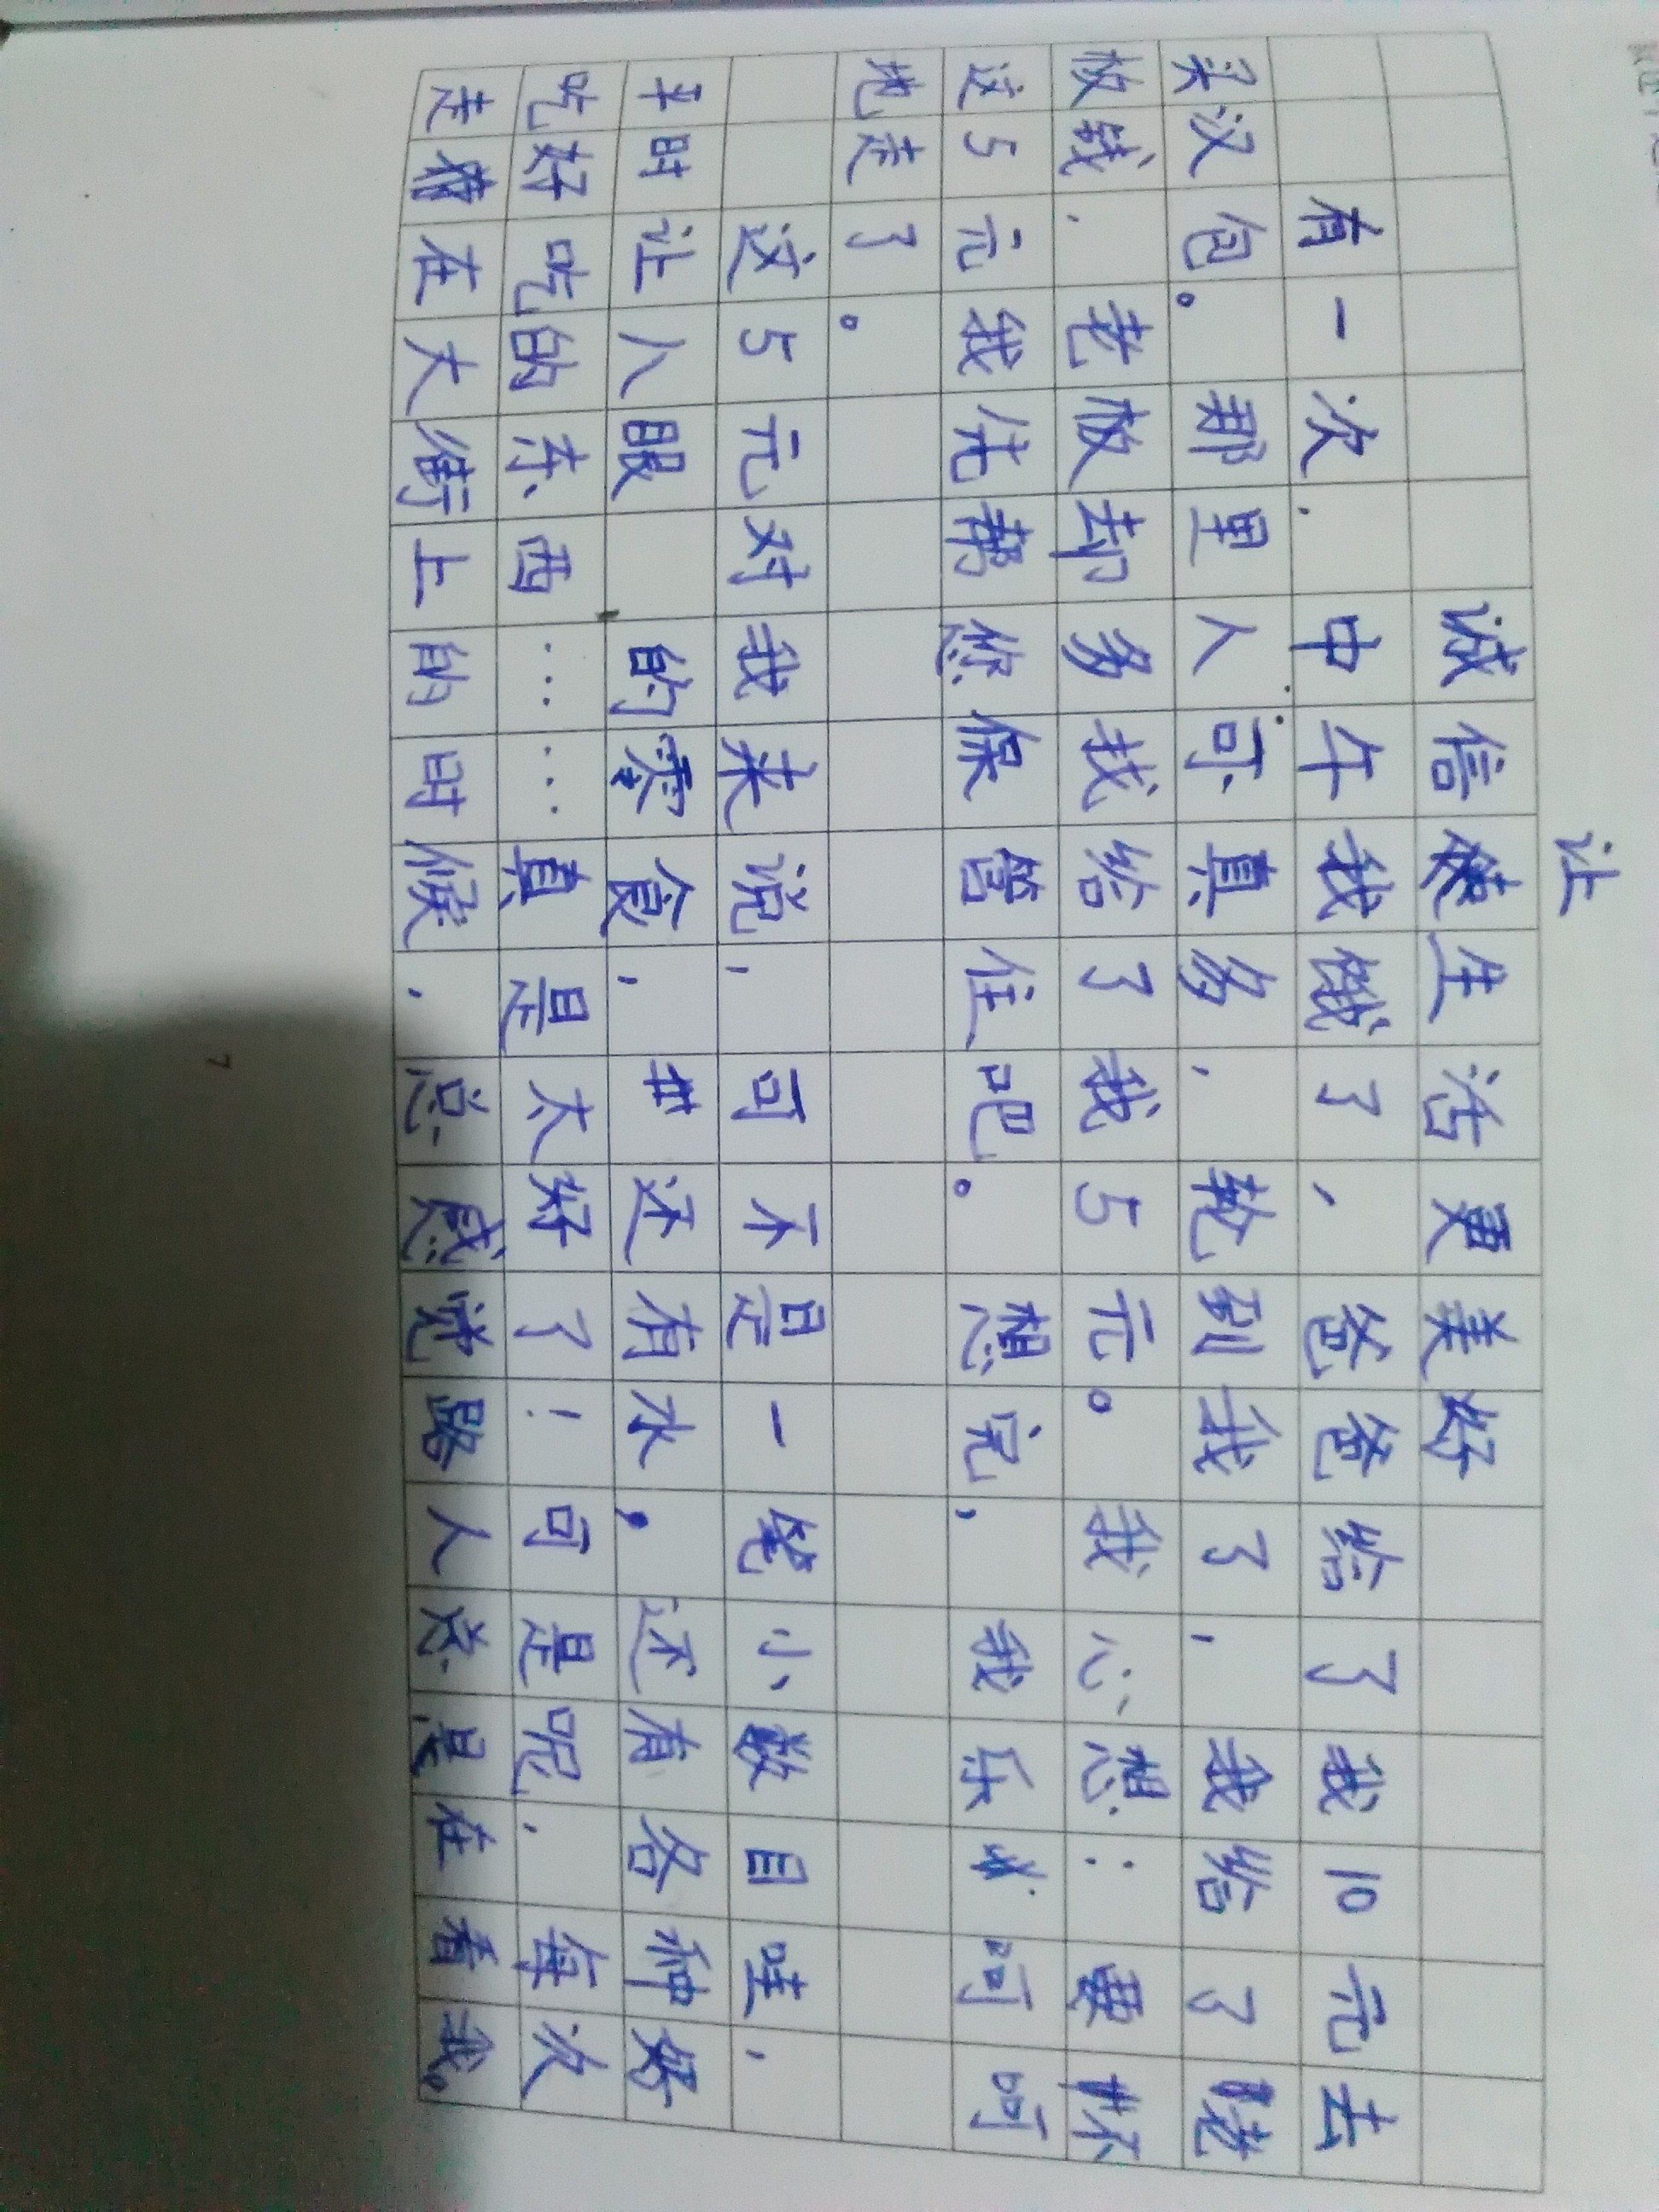 让
诚信使生活更美好
有一次,中午我饿了,爸爸给了我10元去
买汉包。那里人可真多,轮到我了,我给了老
板钱,老板却多找给了我5元。我心想:要不
这5元我先帮您保管住吧。想完,我乐呵呵
地走了。
这5元对我来说,可不是一笔小数目哇,
平时让人眼的零食,还有水,还有各种好
吃好吃的东西……真是太好了!可是呢,每次
走在大街上的时候,总感觉路人总是在看我。